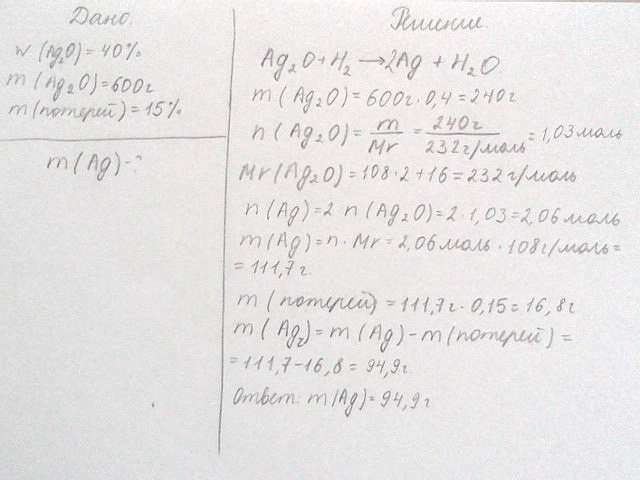 Дано.
w (Ag₂O) = 40%
m (Ag₂O) = 600г
m (потерей) = 15%
m (Ag) - ?
Решение.
Ag₂O + H₂ → 2Ag + H₂O
m (Ag₂O) = 600г · 0,4 = 240г
n (Ag₂O) = m/Mr = 240г/232г/моль = 1,03 моль
Mr (Ag₂O) = 108 · 2 + 16 = 232 г/моль
n (Ag) = 2 n (Ag₂O) = 2 · 1,03 = 2,06 моль
m (Ag) = n · Mr = 2,06 моль · 108г/моль =
= 111,7 г.
m (потерей) = 111,7г · 0,15 = 16,8г
m (Ag₂) = m (Ag) - m (потерей) =
= 111,7 - 16,8 = 94,9г.
Ответ: m (Ag) = 94,9г